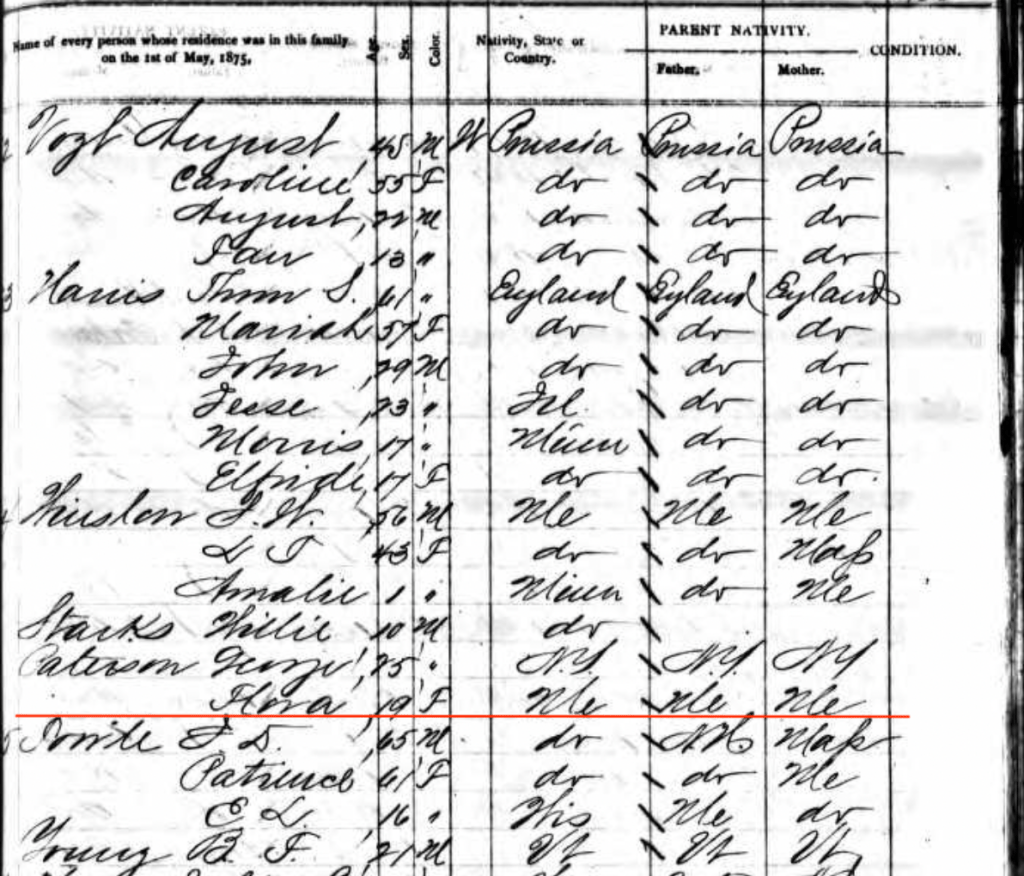 Name of every person whose residence was in this family on the 1st of May, 1875, Age. Sex. Color. Nativity, State or Country. PARENT NATIVITY. Father. Mother. CONDITION.
Vogt August 45 M W Prussia Prussia Prussia
Caroline 55 F do do do
August 22 M do do do
13 " do do do
Harris Thom S. 61 " England England England
Mariah 57 F do do do
John 29 M do do do
Jesse 23 " do do
Morris 17 " Minn do do
Elfride 17 F do do do
J. W. 56 M Me Me Me
L T 43 F do do Mass
Amalie 1 " Minn do Me
Starks Willie 10 M do
Paterson George 25 " N.Y. N.Y. N.Y
Flora 19 F Me Me Me
J. D. 65 M do N.H. Mass
Patience 61 F do do Me
E L 16 " Wis Me do
Young B. F. 21 M Vt Vt Vt